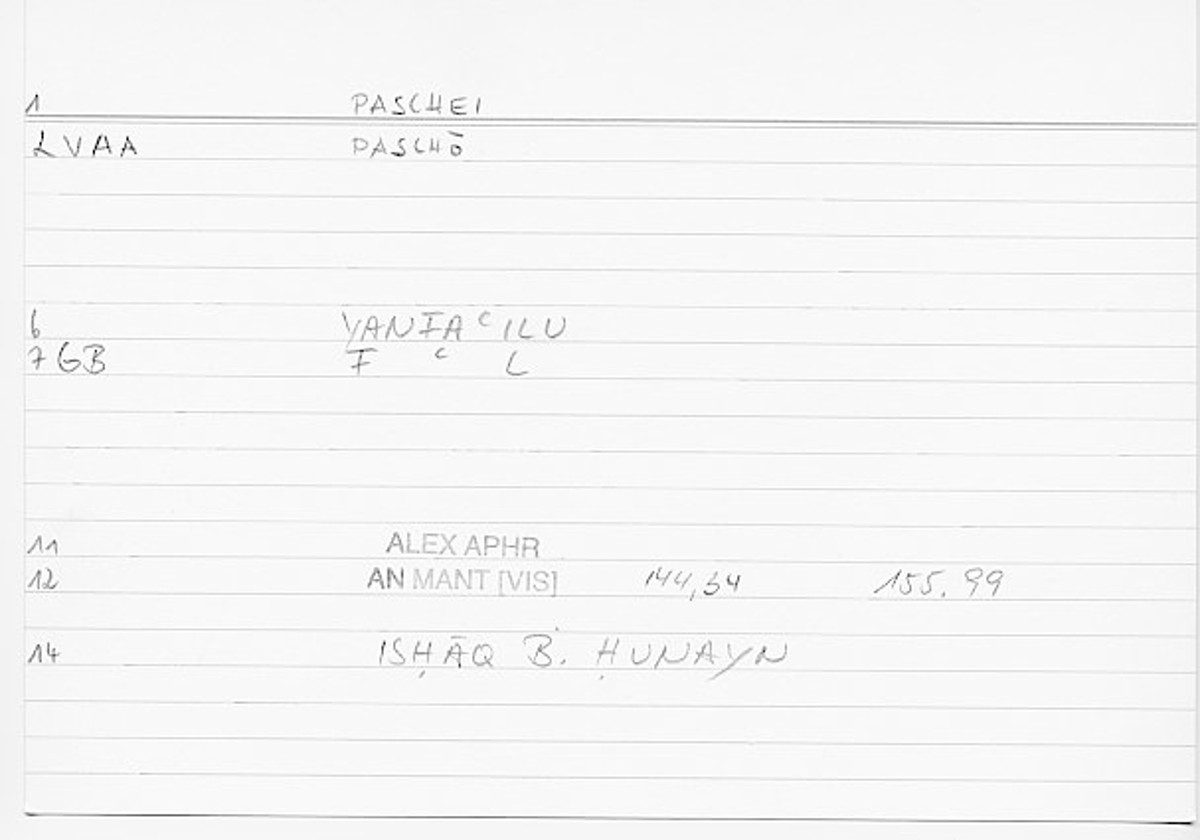 1 PASCHEI
LVAA PASCHŌ
6 YANFAʿILU
7 GB F ʿ L
11 ALEX APHR
12 AN MANT [VIS] 144,34 155.99
14 ISḤĀQ B. ḤUNAYN